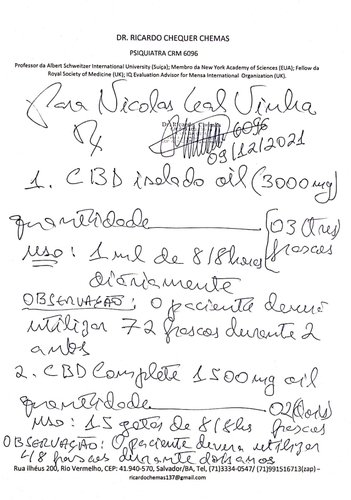 DR. RICARDO CHEQUER CHEMAS
PSIQUIATRA CRM 6096
Professor da Albert Schweitzer International University (Suiça); Membro da New York Academy of Sciences (EUA); Fellow da
Royal Society of Medicine (UK); IQ Evaluation Advisor for Mensa International Organization (UK).
Para Nicolas Leal Vinha
Rx
6096
09/12/2021
1. CBD isolado oil (3000 mg)
quantidade 03 (três) frascos
uso: 1 ml de 8/8 horas
diariamente
OBSERVAÇÃO: O paciente deverá
utilizar 72 frascos durante 2
anos
2. CBD Complete 1500 mg oil
quantidade 02 (dois) frascos
uso: 15 gotas de 8/8hs
OBSERVAÇÃO: O paciente deverá utilizar
48 frascos durante dois anos
Rua Ilhéus 200, Rio Vermelho, CEP: 41.940-570, Salvador/BA, Tel, (71)3334-0547/ (71)991516713(zap) –
ricardochemas137@gmail.com